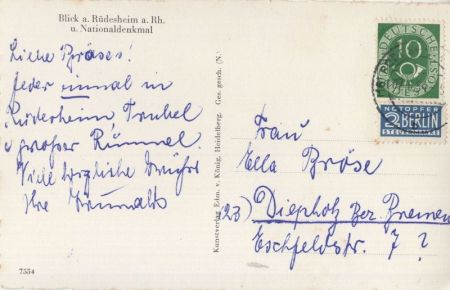 Blick a. Rüdesheim a. Rh.
u. Nationaldenkmal
Liebe Bröses!
Jeder einmal in
Rüdesheim, Trubel
u großer Rummel.
Viele herzliche Grüße
Ihre
Kunstverlag Edm. v. König, Heidelberg. Ges. gesch. (N.)
7554
DEUTSCHE POST
10
NOTOPFER
2 BERLIN
STEUERMARKE
Frau
Ella Bröse
(23) Diepholz Bez. Bremen
Eschfeldstr. 7 ?